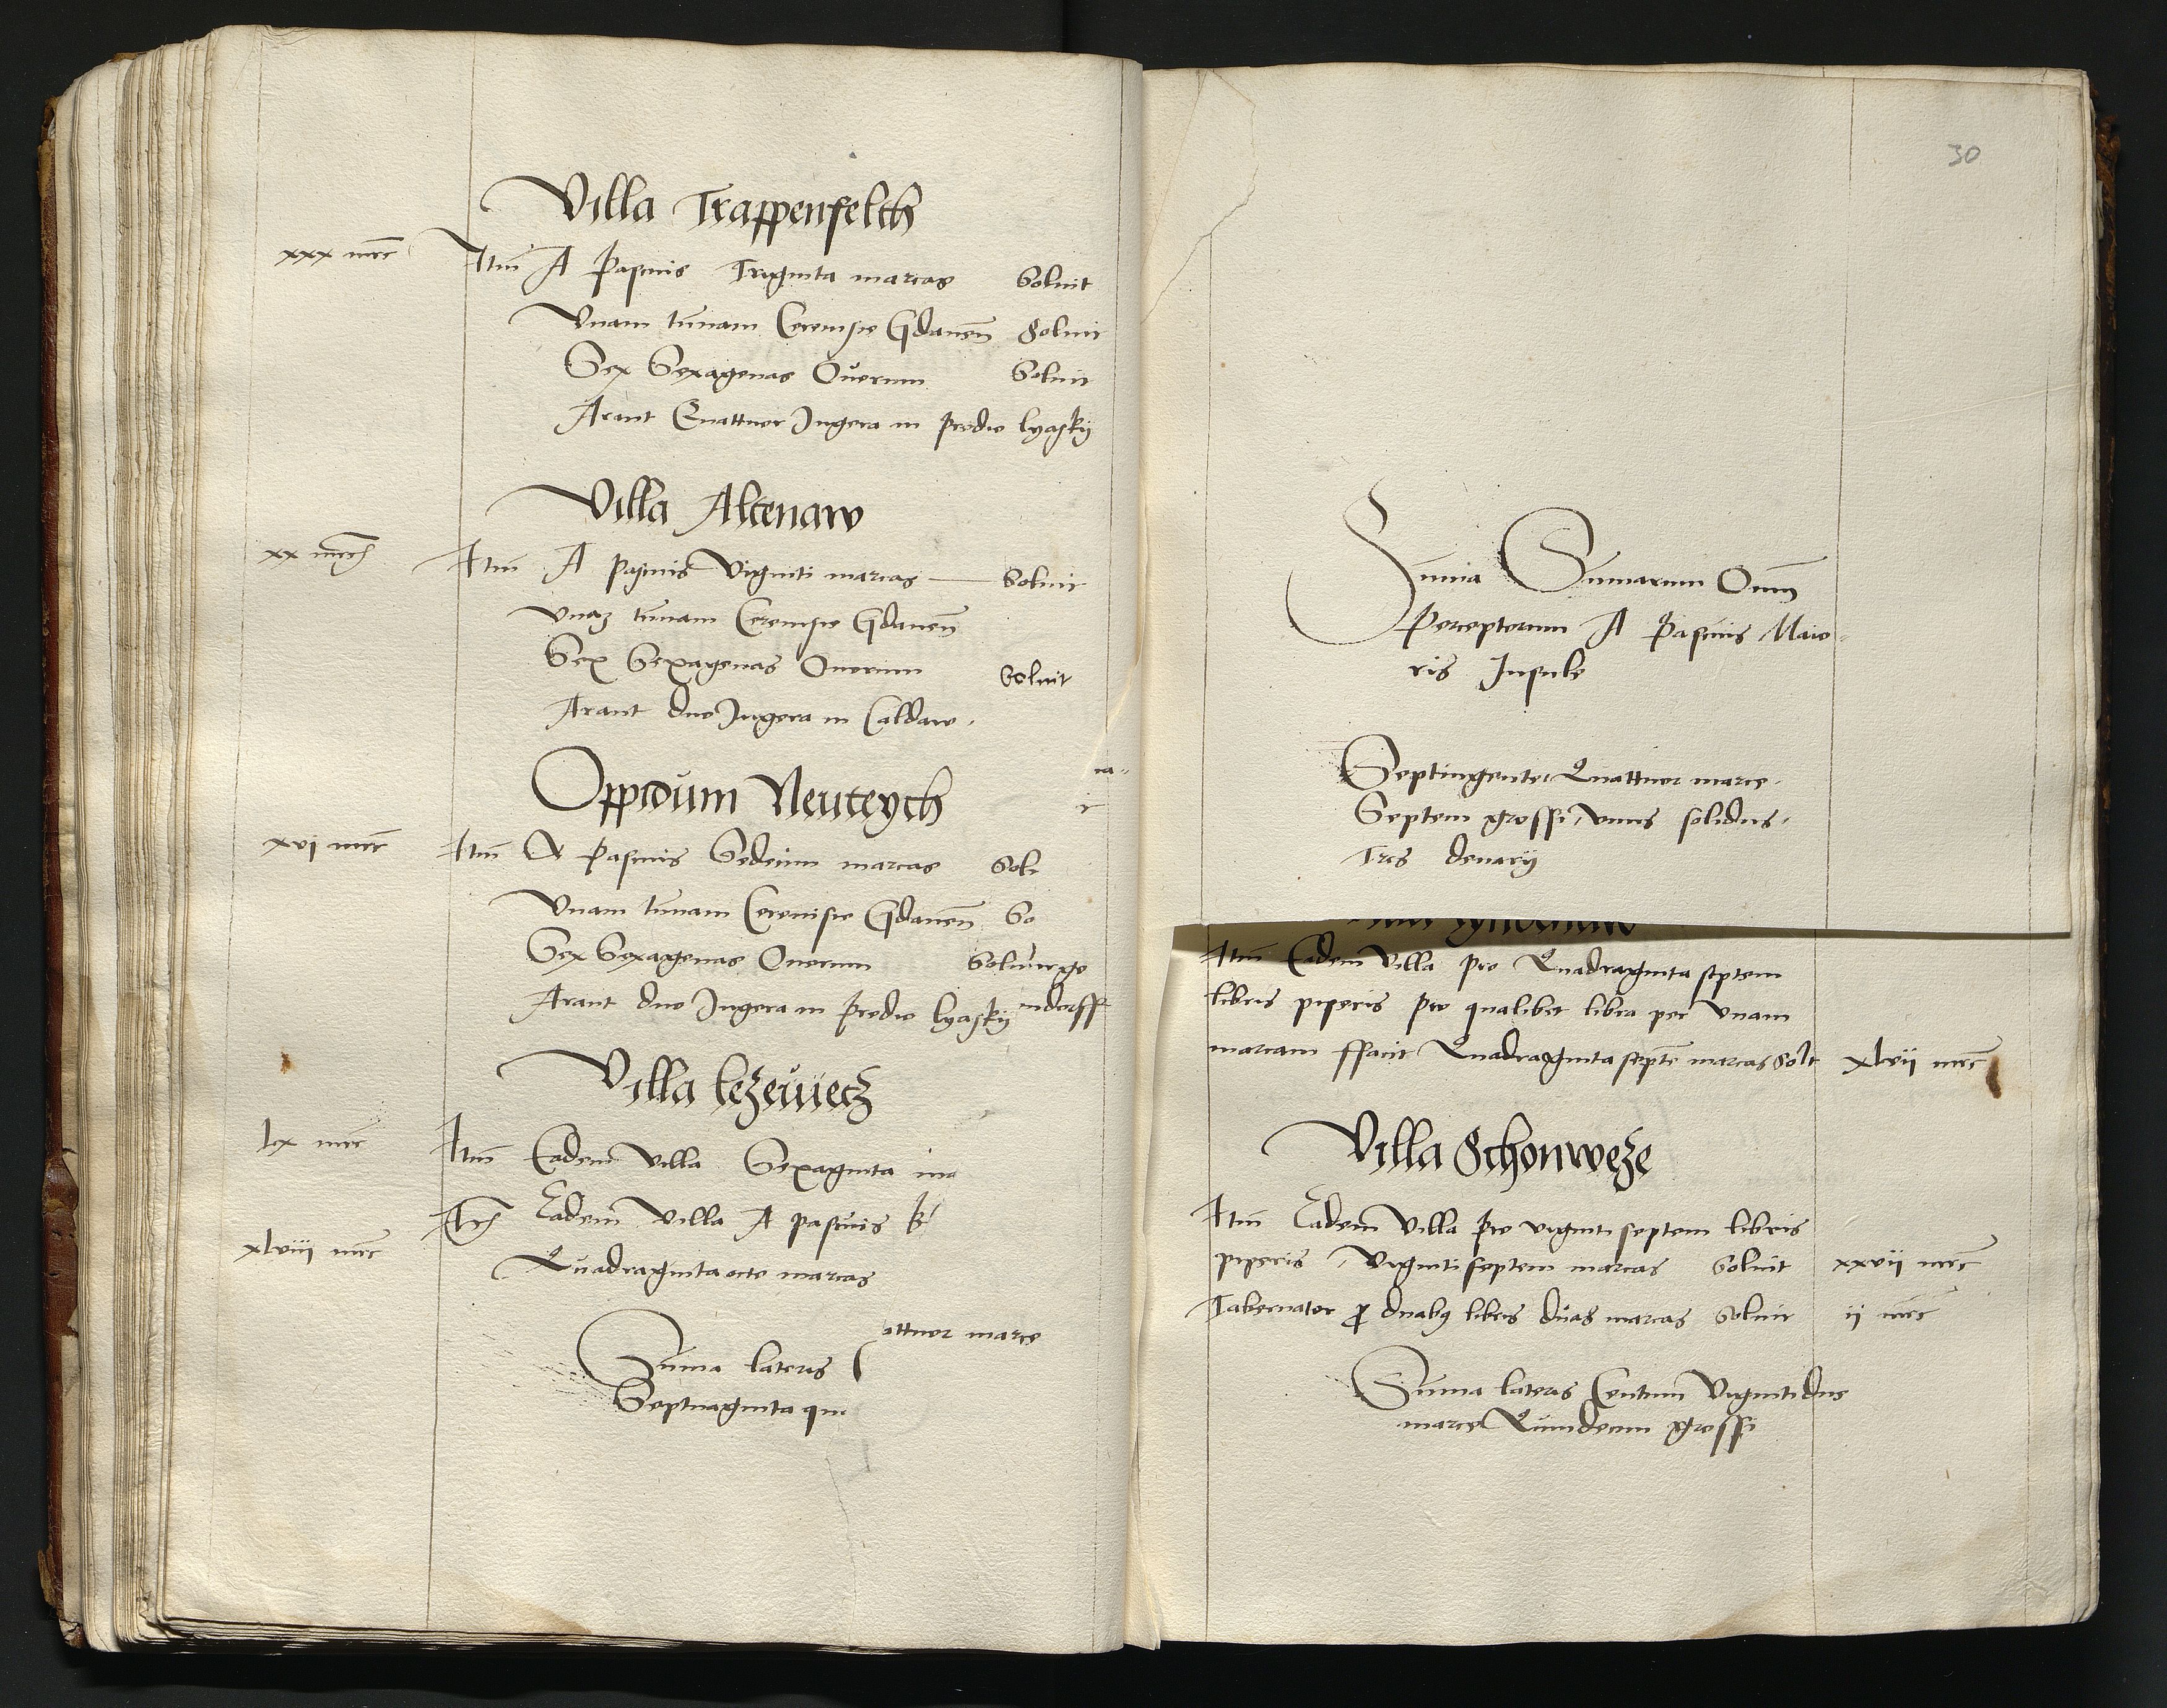 Villa Trappenfelth
xxx mrc Itm A Pascuis Triginta marcas Soluit
Vnam tunnam Cereuisie Gdanen Soluit
Sex Sexagenas Ouorum Soluit
Arant Quattuor Jugera in predio lyasky
Villa Altenaw
xx mrc Itm A pascuis Viginti marcas Soluit
vnaz tunnam Cereuisie Gdanen
Sex Sexagenas Ouorum Soluit
Arant duo Jugera in Caldaw.
Oppidum Neuteych
xvi mrc Itm A Pascuis Sedecim marcas Solu
Vnam tunnam Cereuisie Gdanen So
Sex Sexagenas Ouorum Soluu
Arant duo Jugera in predio lyasky
ndorff
Villa lezeuuecz
lx mrc Itm Eadem Villa Sexaginta ma
Eadem Villa A pascuis
xlviii mrc Quadragintaocto marcas
Suma lateris
Septuaginta qu
attuor marce
30
Suma Sumarum Oim
Perceptorum A Pascuis Maio
ris Insule
Septingente Quattuor marce.
Septem grossi, vnus solidus,
Tres denarij
Itm Eadem Villa pro Quadraginta septem
libris piperis pro qualibet libra per vnam
marcam ffacit Quadraginta septe marcas Solt xlvii mrc
Villa Schonweze
Itm Eadem Villa pro viginti septem libris
piperis, Viginti septem marcas Soluit xxvii mrc
Tabernator p duabus libris duas marcas Soluit ij mrc
Suma lateris Centum Viginti due
marce Quindecim grossi